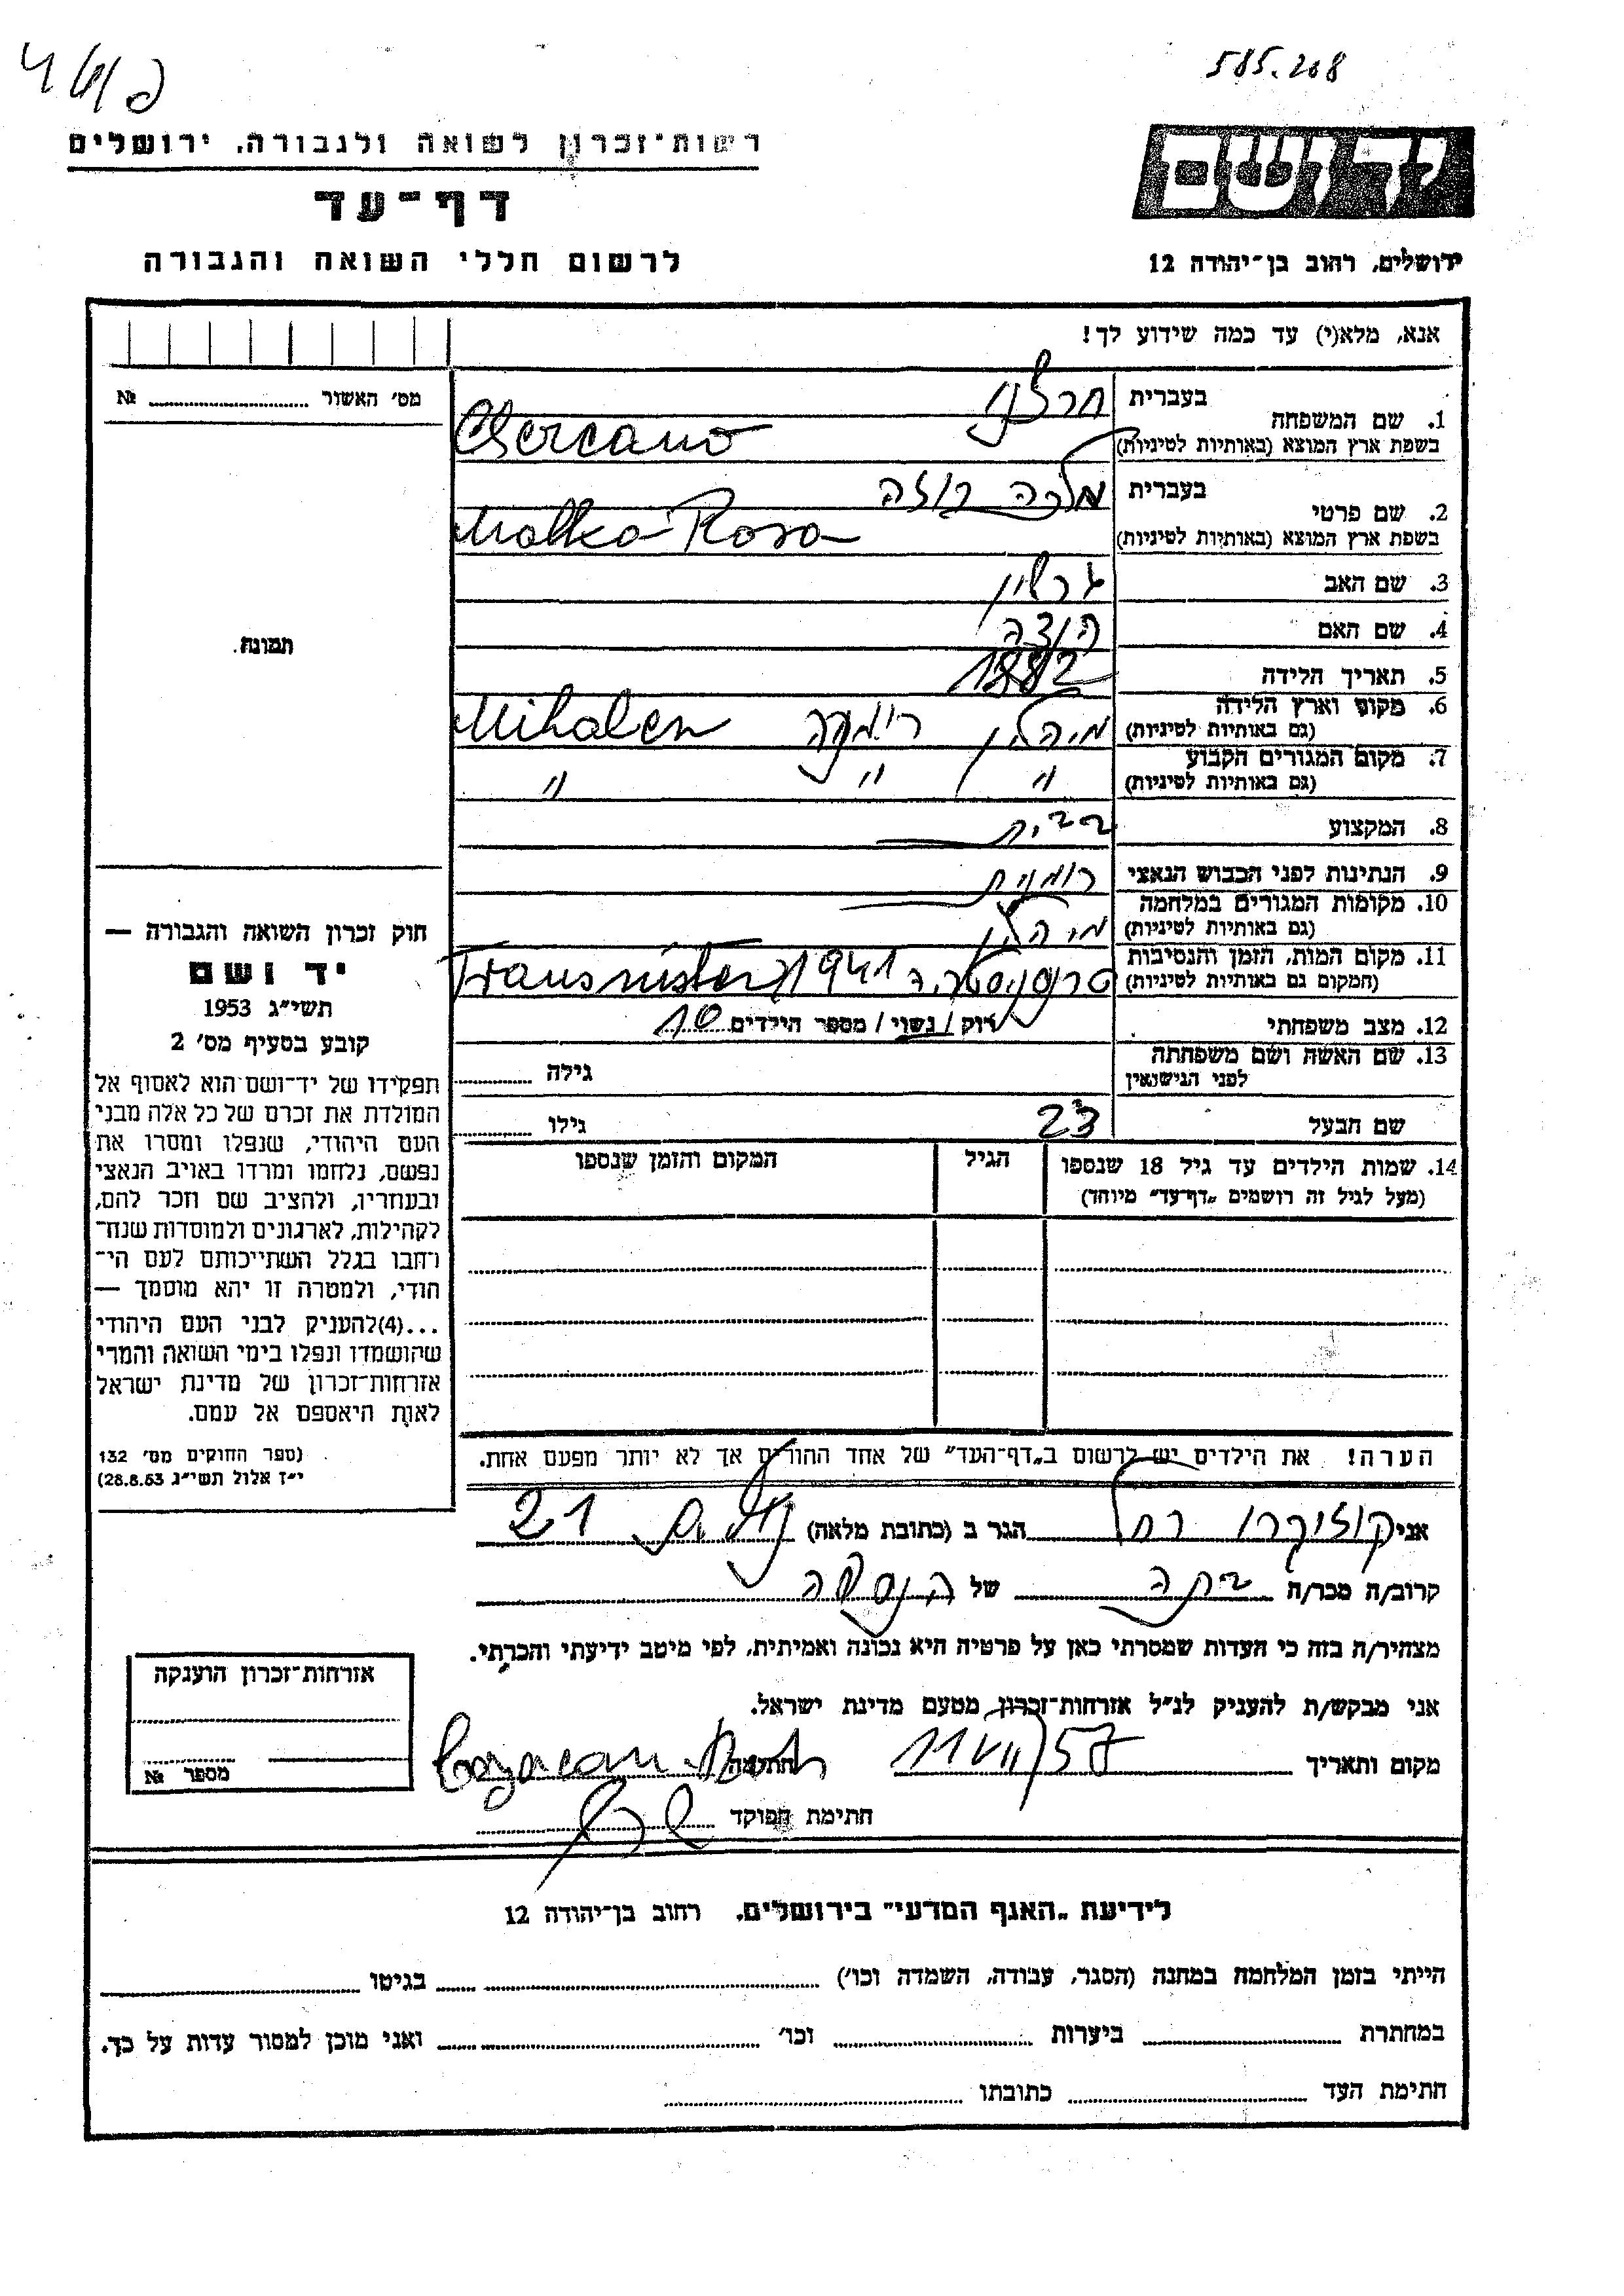 585.208
רשות־זכרון לשואה ולגבורה, ירושלים
יד ושם
דף־עד
ירושלים, רחוב בן־יהודה 12
לרשום חללי השואה והגבורה
אנא, מלא(י) עד כמה שידוע לך!
מס׳ האשור № 
1. שם המשפחה בעברית
בשפת ארץ המוצא (באותיות לטיניות)
2. שם פרטי בעברית מלכה רוזה
בשפת ארץ המוצא (באותיות לטיניות) Malka Rosa
3. שם האב
4. שם האם
תמונה.
5. תאריך הלידה 1882
6. מקום וארץ הלידה
(גם באותיות לטיניות) Mihalen
7. מקום המגורים הקבוע
(גם באותיות לטיניות) " " "
8. המקצוע
9. הנתינות לפני הכבוש הנאצי רומנית
10. מקומות המגורים במלחמה
(גם באותיות לטיניות)
11. מקום המות, הזמן והנסיבות
(המקום גם באותיות לטיניות) טרנסניסטריה 1941
12. מצב משפחתי רוק / נשוי / מספר הילדים 10
13. שם האשה ושם משפחתה
לפני הנישואין גילה
שם הבעל גילו
14. שמות הילדים עד גיל 18 שנספו הגיל המקום והזמן שנספו
(מעל לגיל זה רושמים „דף־עד״ מיוחד)
חוק זכרון השואה והגבורה —
יד ושם
תשי״ג 1953
קובע בסעיף מס׳ 2
תפקידו של יד־ושם הוא לאסוף אל
המולדת את זכרם של כל אלה מבני
העם היהודי, שנפלו ומסרו את
נפשם, נלחמו ומרדו באויב הנאצי
ובעוזריו, ולהציב שם וזכר להם,
לקהילות, לארגונים ולמוסדות שנח־
רבו בגלל השתייכותם לעם הי־
הודי, ולמטרה זו יהא מוסמך —
...(4)להעניק לבני העם היהודי
שהושמדו ונפלו בימי השואה והמרי
אזרחות־זכרון של מדינת ישראל
לאות היאספם אל עמם.
(ספר החוקים מס׳ 132
י״ז אלול תשי״ג 28.8.53)
הערה! את הילדים יש לרשום ב„דף־העד״ של אחד ההורים אך לא יותר מפעם אחת.
אני רחל הגר ב (כתובת מלאה) 21
קרוב/ה מכר/ה בתה של הנספה
מצהיר/ה בזה כי העדות שמסרתי כאן על פרטיה היא נכונה ואמיתית, לפי מיטב ידיעתי והכרתי.
אני מבקש/ת להעניק לנ״ל אזרחות־זכרון מטעם מדינת ישראל.
מקום ותאריך 11/VII/57 חתימה
חתימת הפוקד
אזרחות־זכרון הוענקה
מספר №
לידיעת „האגף המדעי״ בירושלים, רחוב בן־יהודה 12
הייתי בזמן המלחמה במחנה (הסגר, עבודה, השמדה וכו׳) בגיטו
במחתרת ביערות וכו׳ ואני מוכן למסור עדות על כך.
חתימת העד כתובתו